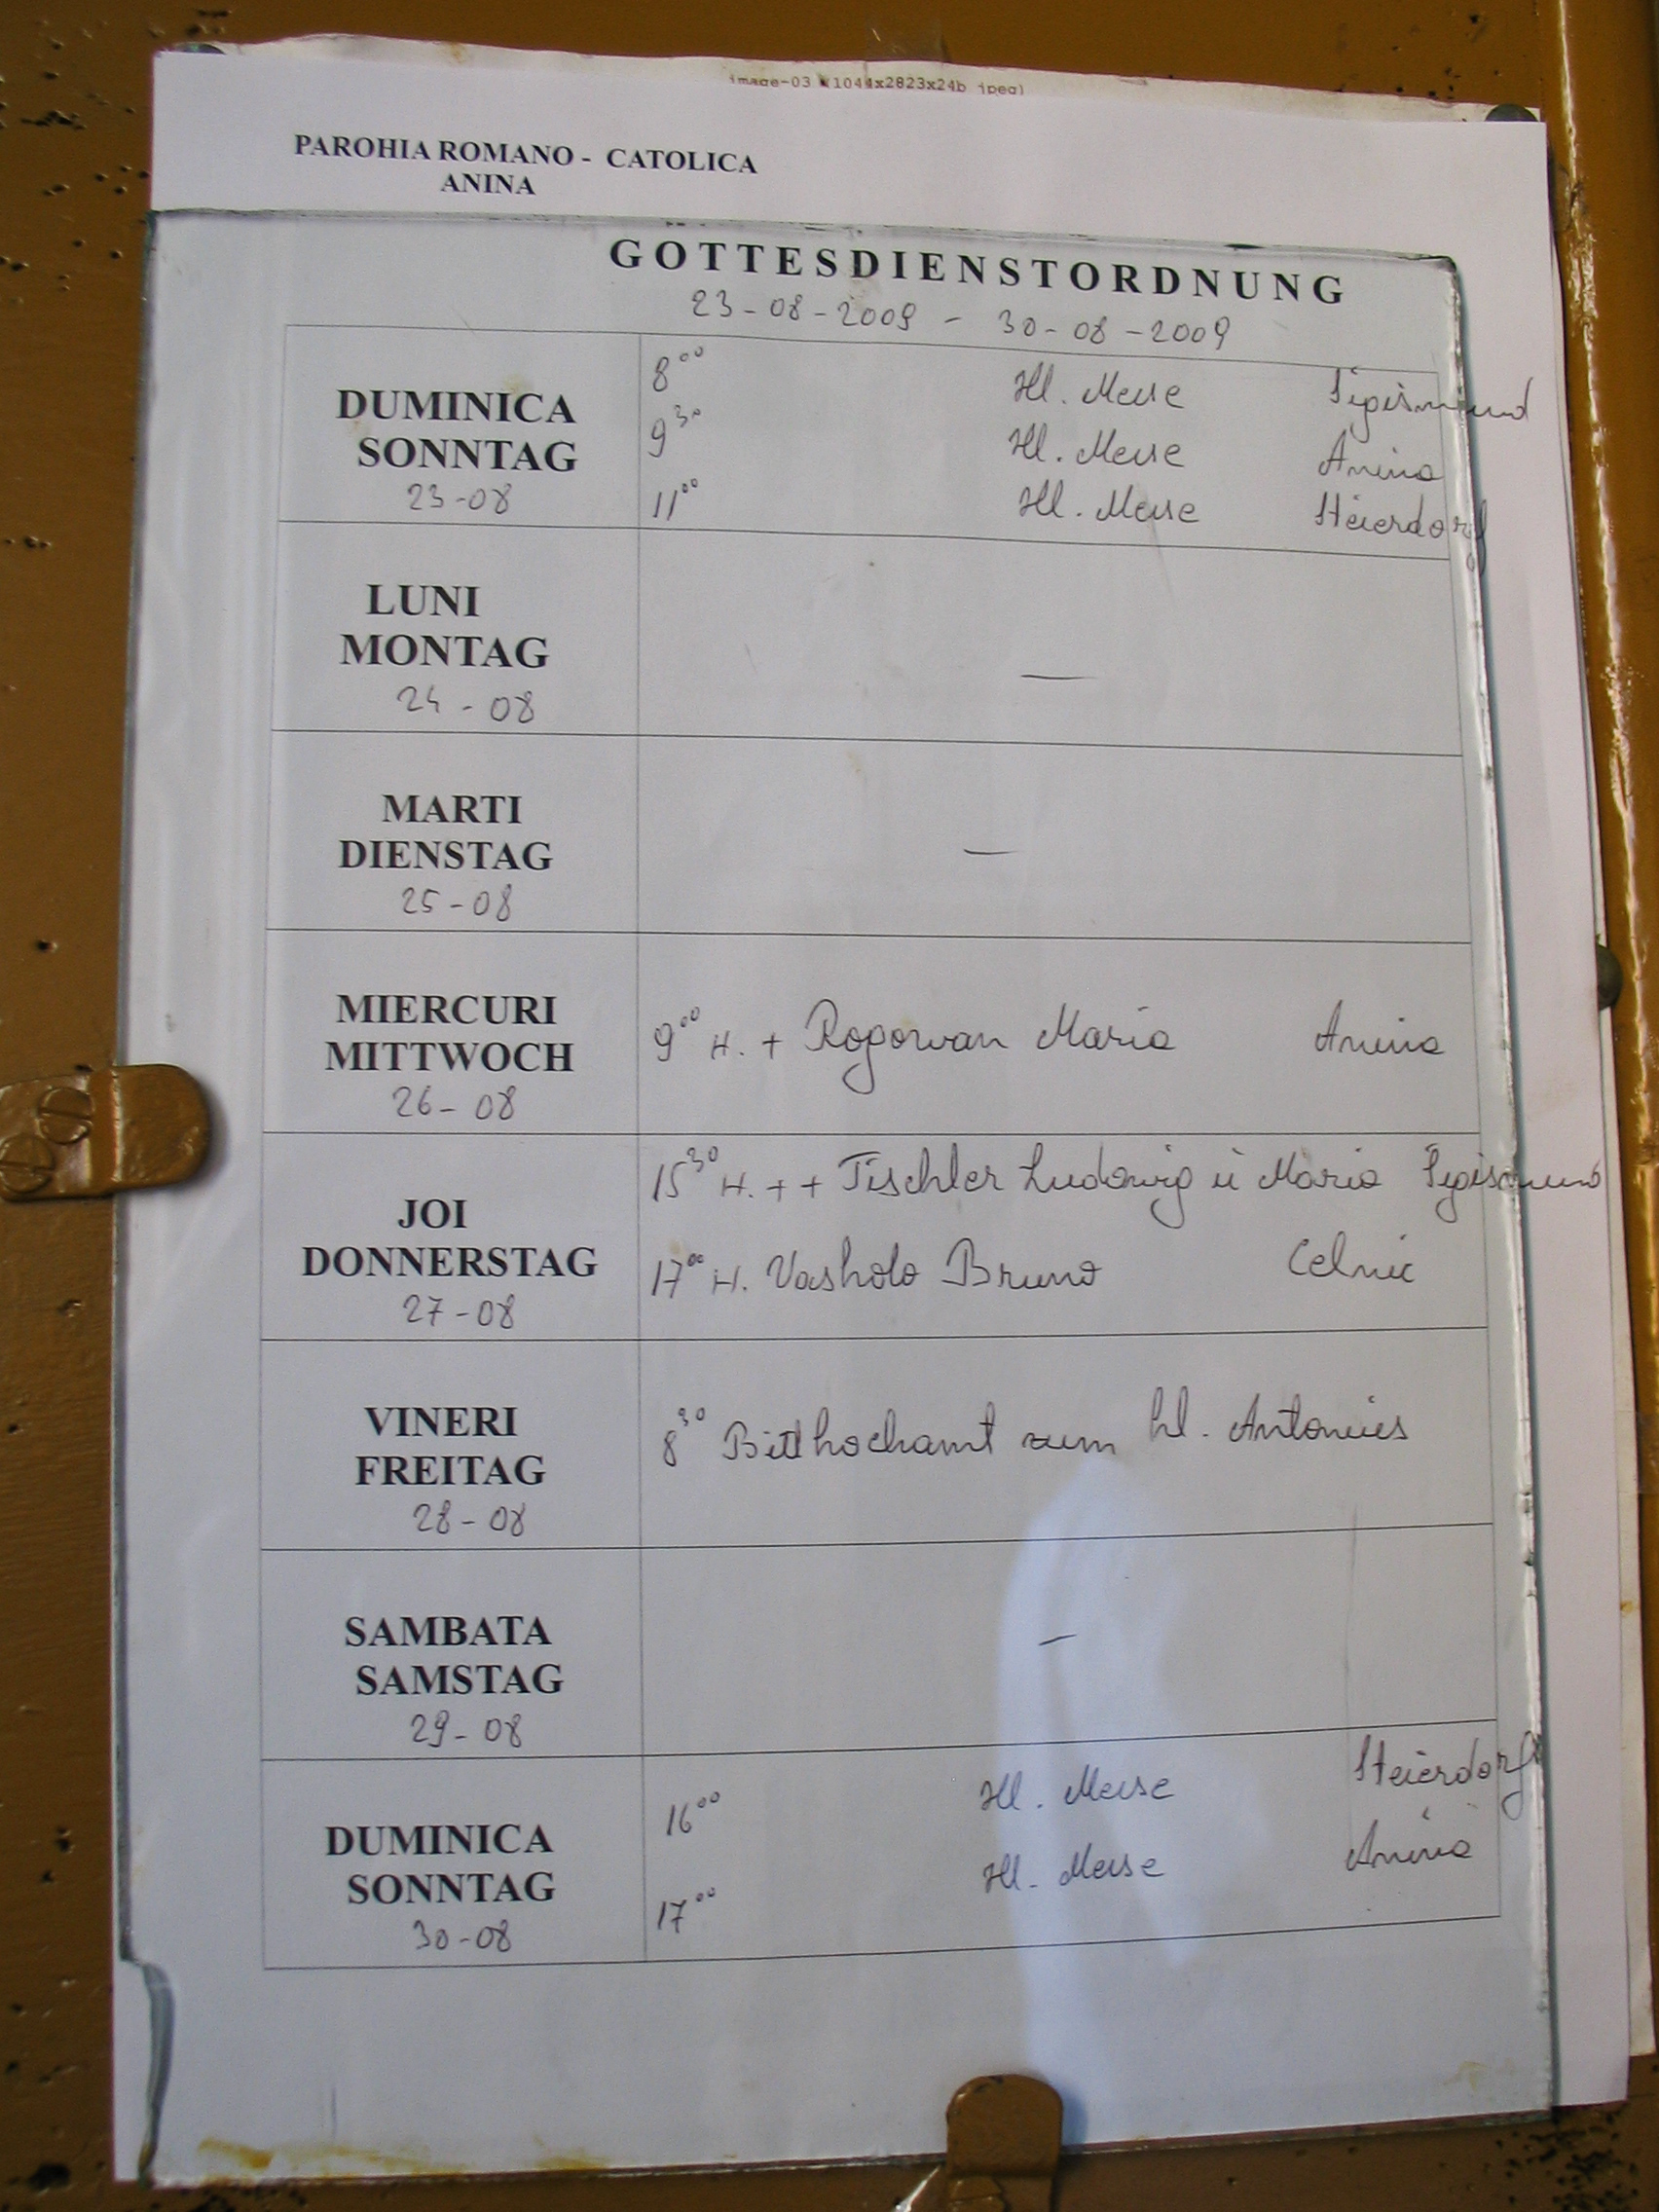 image-03 (1044x2823x24b jpeg)
PAROHIA ROMANO - CATOLICA
ANINA
GOTTESDIENSTORDNUNG
23-08-2009 - 30-08-2009
DUMINICA
SONNTAG
23-08
8⁰⁰ Hl. Messe Sigismund
9³⁰ Hl. Messe Anina
11⁰⁰ Hl. Messe Steierdorf
LUNI
MONTAG
24-08
—
MARTI
DIENSTAG
25-08
—
MIERCURI
MITTWOCH
26-08
9⁰⁰ H. + Maria Anina
JOI
DONNERSTAG
27-08
15³⁰ H. + + Tischler Ludowig ü Maria Sigismund
17⁰⁰ H. Bruno Celnic
VINERI
FREITAG
28-08
8³⁰ Bitthochamt zum hl. Antonius
SAMBATA
SAMSTAG
29-08
—
DUMINICA
SONNTAG
30-08
16⁰⁰ Hl. Messe Steierdorf
17⁰⁰ Hl. Messe Anina